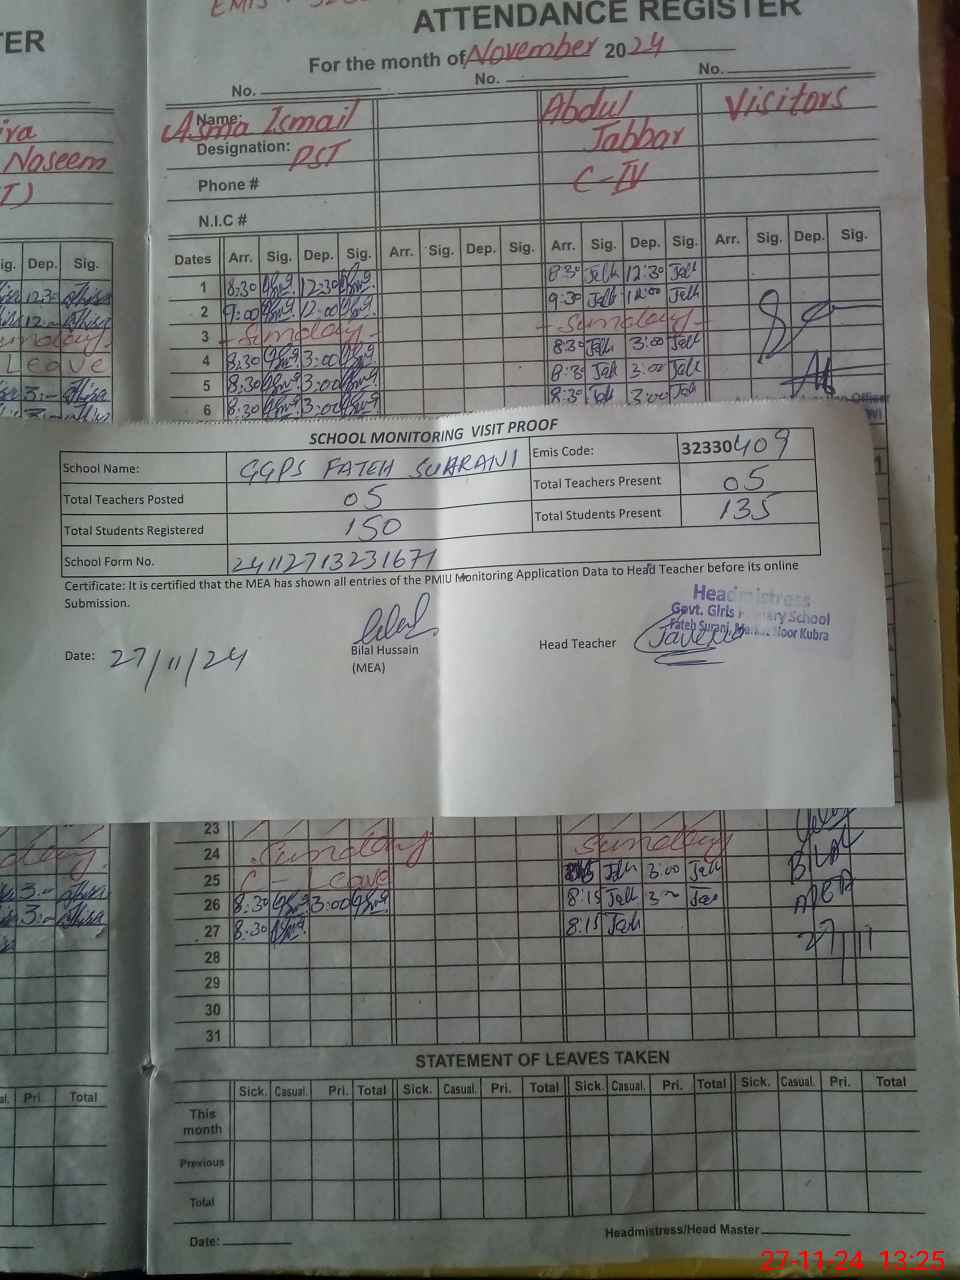 EMIS
ATTENDANCE REGISTER
For the month of November 2024
No. No. No.
Name: Asma Ismail Abdul Jabbar Visitors
Designation: PST C-IV
Phone #
N.I.C #
Dates Arr. Sig. Dep. Sig. Arr. Sig. Dep. Sig. Arr. Sig. Dep. Sig. Arr. Sig. Dep. Sig.
1 8:30 12:30 8:30 Jab 12:30 Jab
2 9:00 12:00 9:30 Jab 12:00 Jab
3 Sunday Sunday
4 8:30 3:00 8:30 Jab 3:00 Jab
5 8:30 3:00 8:30 Jab 3:00 Jab
6 8:30 3:00 8:30 Jab 3:00 Jab
TER
Naseem
Sig. Dep. Sig.
12:30
12:-
Sunday
Leave
3:-
3:-
SCHOOL MONITORING VISIT PROOF
School Name: GGPS FATEH SUARANI Emis Code: 32330409
Total Teachers Posted 05 Total Teachers Present 05
Total Students Registered 150 Total Students Present 135
School Form No. 24112713231671
Certificate: It is certified that the MEA has shown all entries of the PMIU Monitoring Application Data to Head Teacher before its online
Submission.
Headmistress
Govt. Girls Primary School
Fateh Surani, Markaz Noor Kubra
Date: 27/11/24 Bilal Hussain Head Teacher
(MEA)
23
24 Sunday Sunday
25 C-Leave Jab 3:00 Jab
26 8:30 3:00 8:15 Jab 3:- Jab
27 8:30 8:15 Jab
28
29
30
31
BILAL
MEA
27/11
3:-
3:-
STATEMENT OF LEAVES TAKEN
Sick. Casual. Pri. Total Sick. Casual. Pri. Total Sick. Casual. Pri. Total Sick. Casual. Pri. Total
This month
Previous
Total
Pri. Total
Date: Headmistress/Head Master
27-11-24 13:25